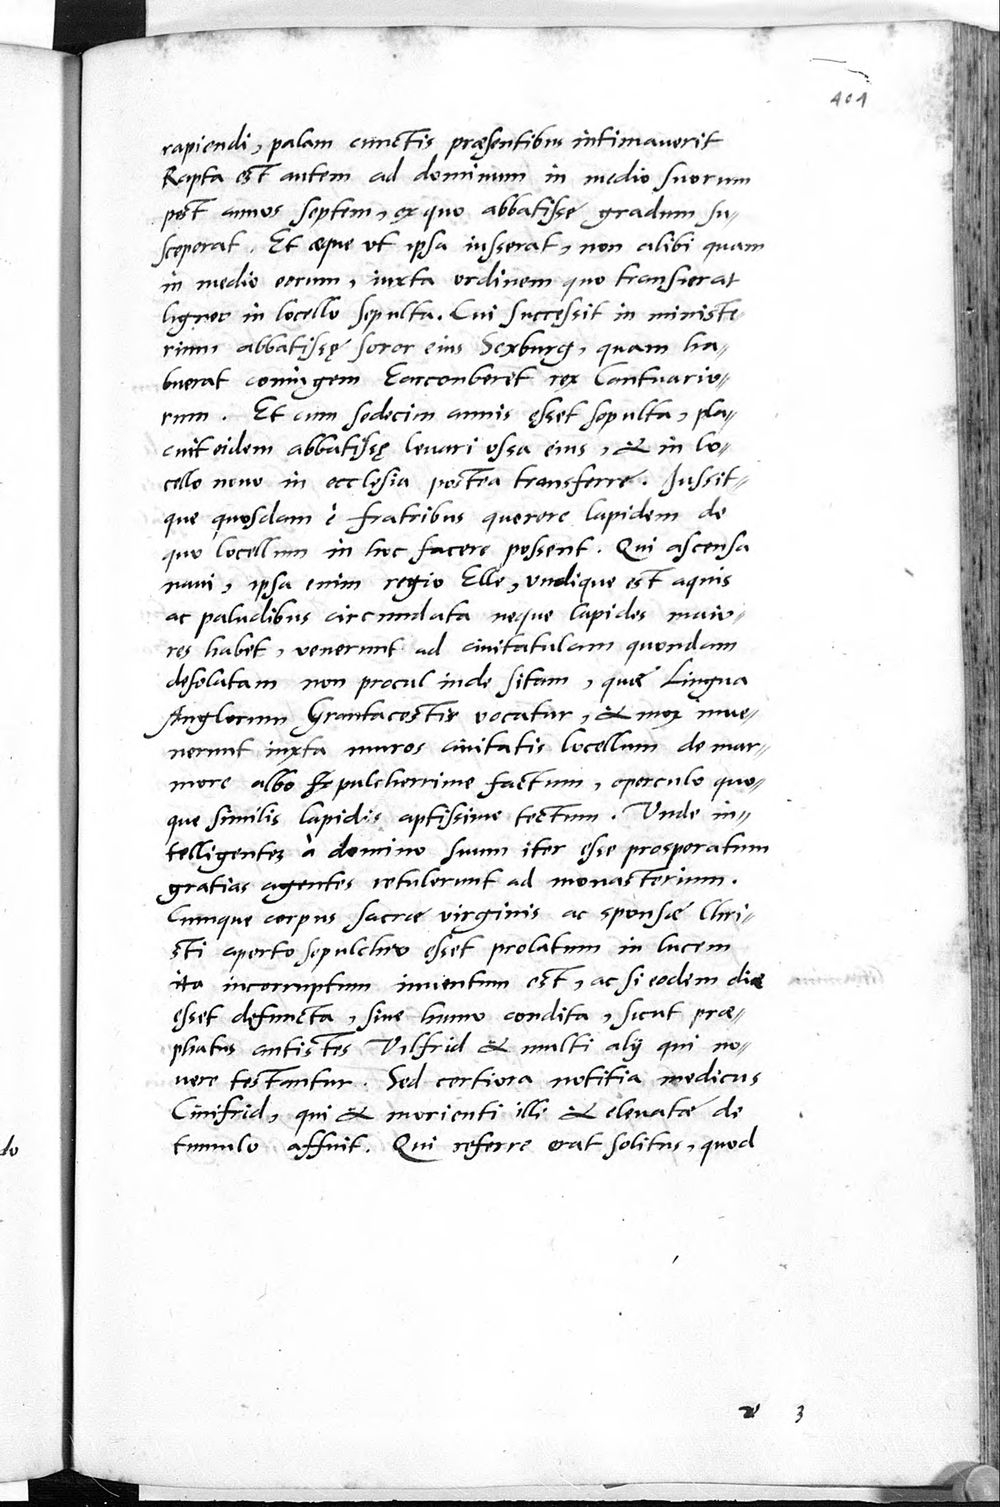 404
rapiendi, palam cunctis præsentibus intimaverit
Rapta est autem ad dominum in medio suorum
post annos septem, ex quo abbatisse gradum su-
sceperat. Et æque ut ipsa iusserat, non alibi quam
in medio eorum, iuxta ordinem quo transierat
ligneo in locello sepulta. Cui successit in ministe-
rium abbatissę soror eius Sexburg, quam ha-
buerat coniugem Earconberit rex Cantuario-
rum. Et cum sedecim annis esset sepulta, pla-
cuit eidem abbatissę levari ossa eius, & in lo-
cello novo in ecclesia postea transferre. Iussit-
que quosdam è fratribus querere lapidem de
quo locellum in hoc facere possent. Qui ascensa
navi, ipsa enim regio Elle, undique est aquis
ac paludibus circundata neque lapides maio-
res habet, venerunt ad civitatulam quondam
desolatam non procul inde sitam, quæ Lingua
Anglorum Grantacestir vocatur, & mox inve-
nerunt iuxta muros civitatis locellum de mar-
more albo & pulcherrime factum, operculo quo-
que similis lapidis aptissime tectum. Unde in-
telligentes à domino suum iter esse prosperatum
gratias agentes retulerunt ad monasterium.
Cumque corpus sacræ virginis ac sponsæ Chri-
sti aperto sepulchro esset prolatum in lucem
ita incorruptum inventum est, ac si eodem die
esset defuncta, sive humo condita, sicut præ-
phatus antistes Vilfrid & multi alij qui no-
vere testantur. Sed certiora notitia medicus
Cinifrid, qui & morienti illi & elevatæ de
tumulo affuit. Qui referre erat solitus, quod
do
3